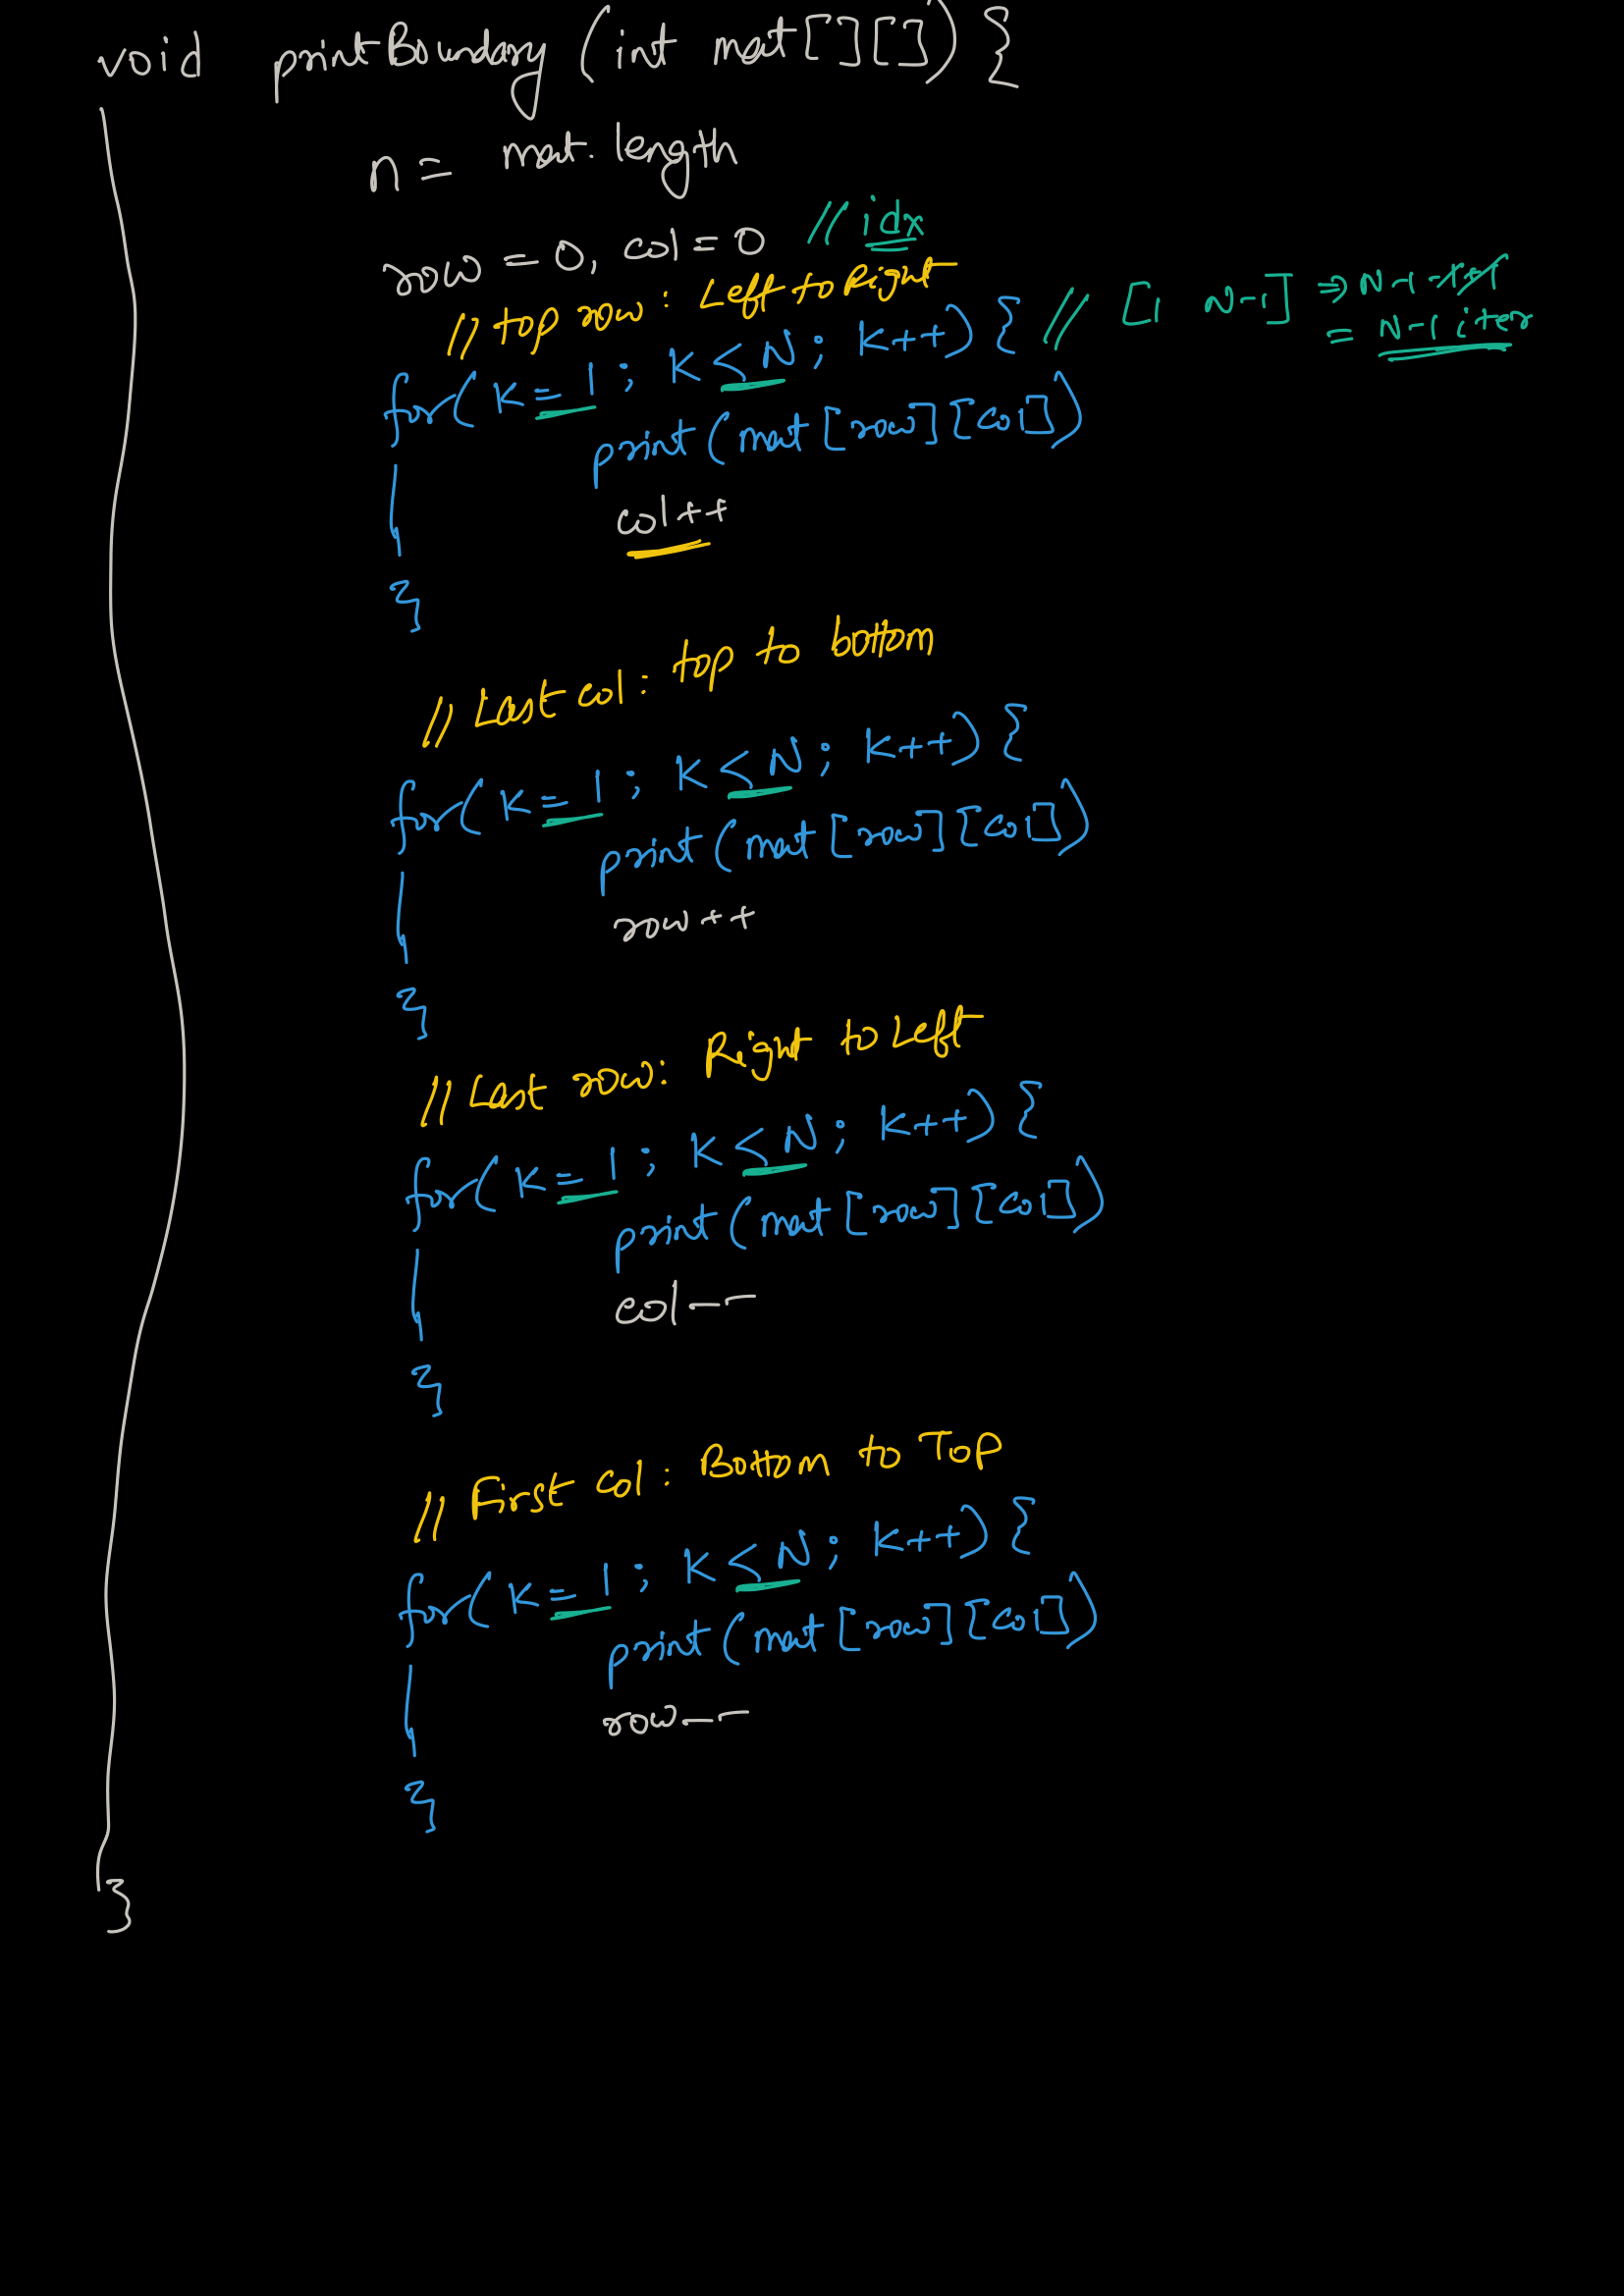 void printBoundary (int mat[][]) {
n = mat.length
row = 0, col = 0 // idx
// top row : Left to Right
for( K = 1 ; K < N ; K++) { // [1 N-1] ⇒ N-1-1+1
= N-1 iter
print (mat [row][col])
col++
}
// Last col : top to bottom
for( K = 1 ; K < N ; K++) {
print (mat [row][col])
row++
}
// Last row : Right to Left
for( K = 1 ; K < N ; K++) {
print (mat [row][col])
col--
}
// First col : Bottom to Top
for( K = 1 ; K < N ; K++) {
print (mat [row][col])
row--
}
}